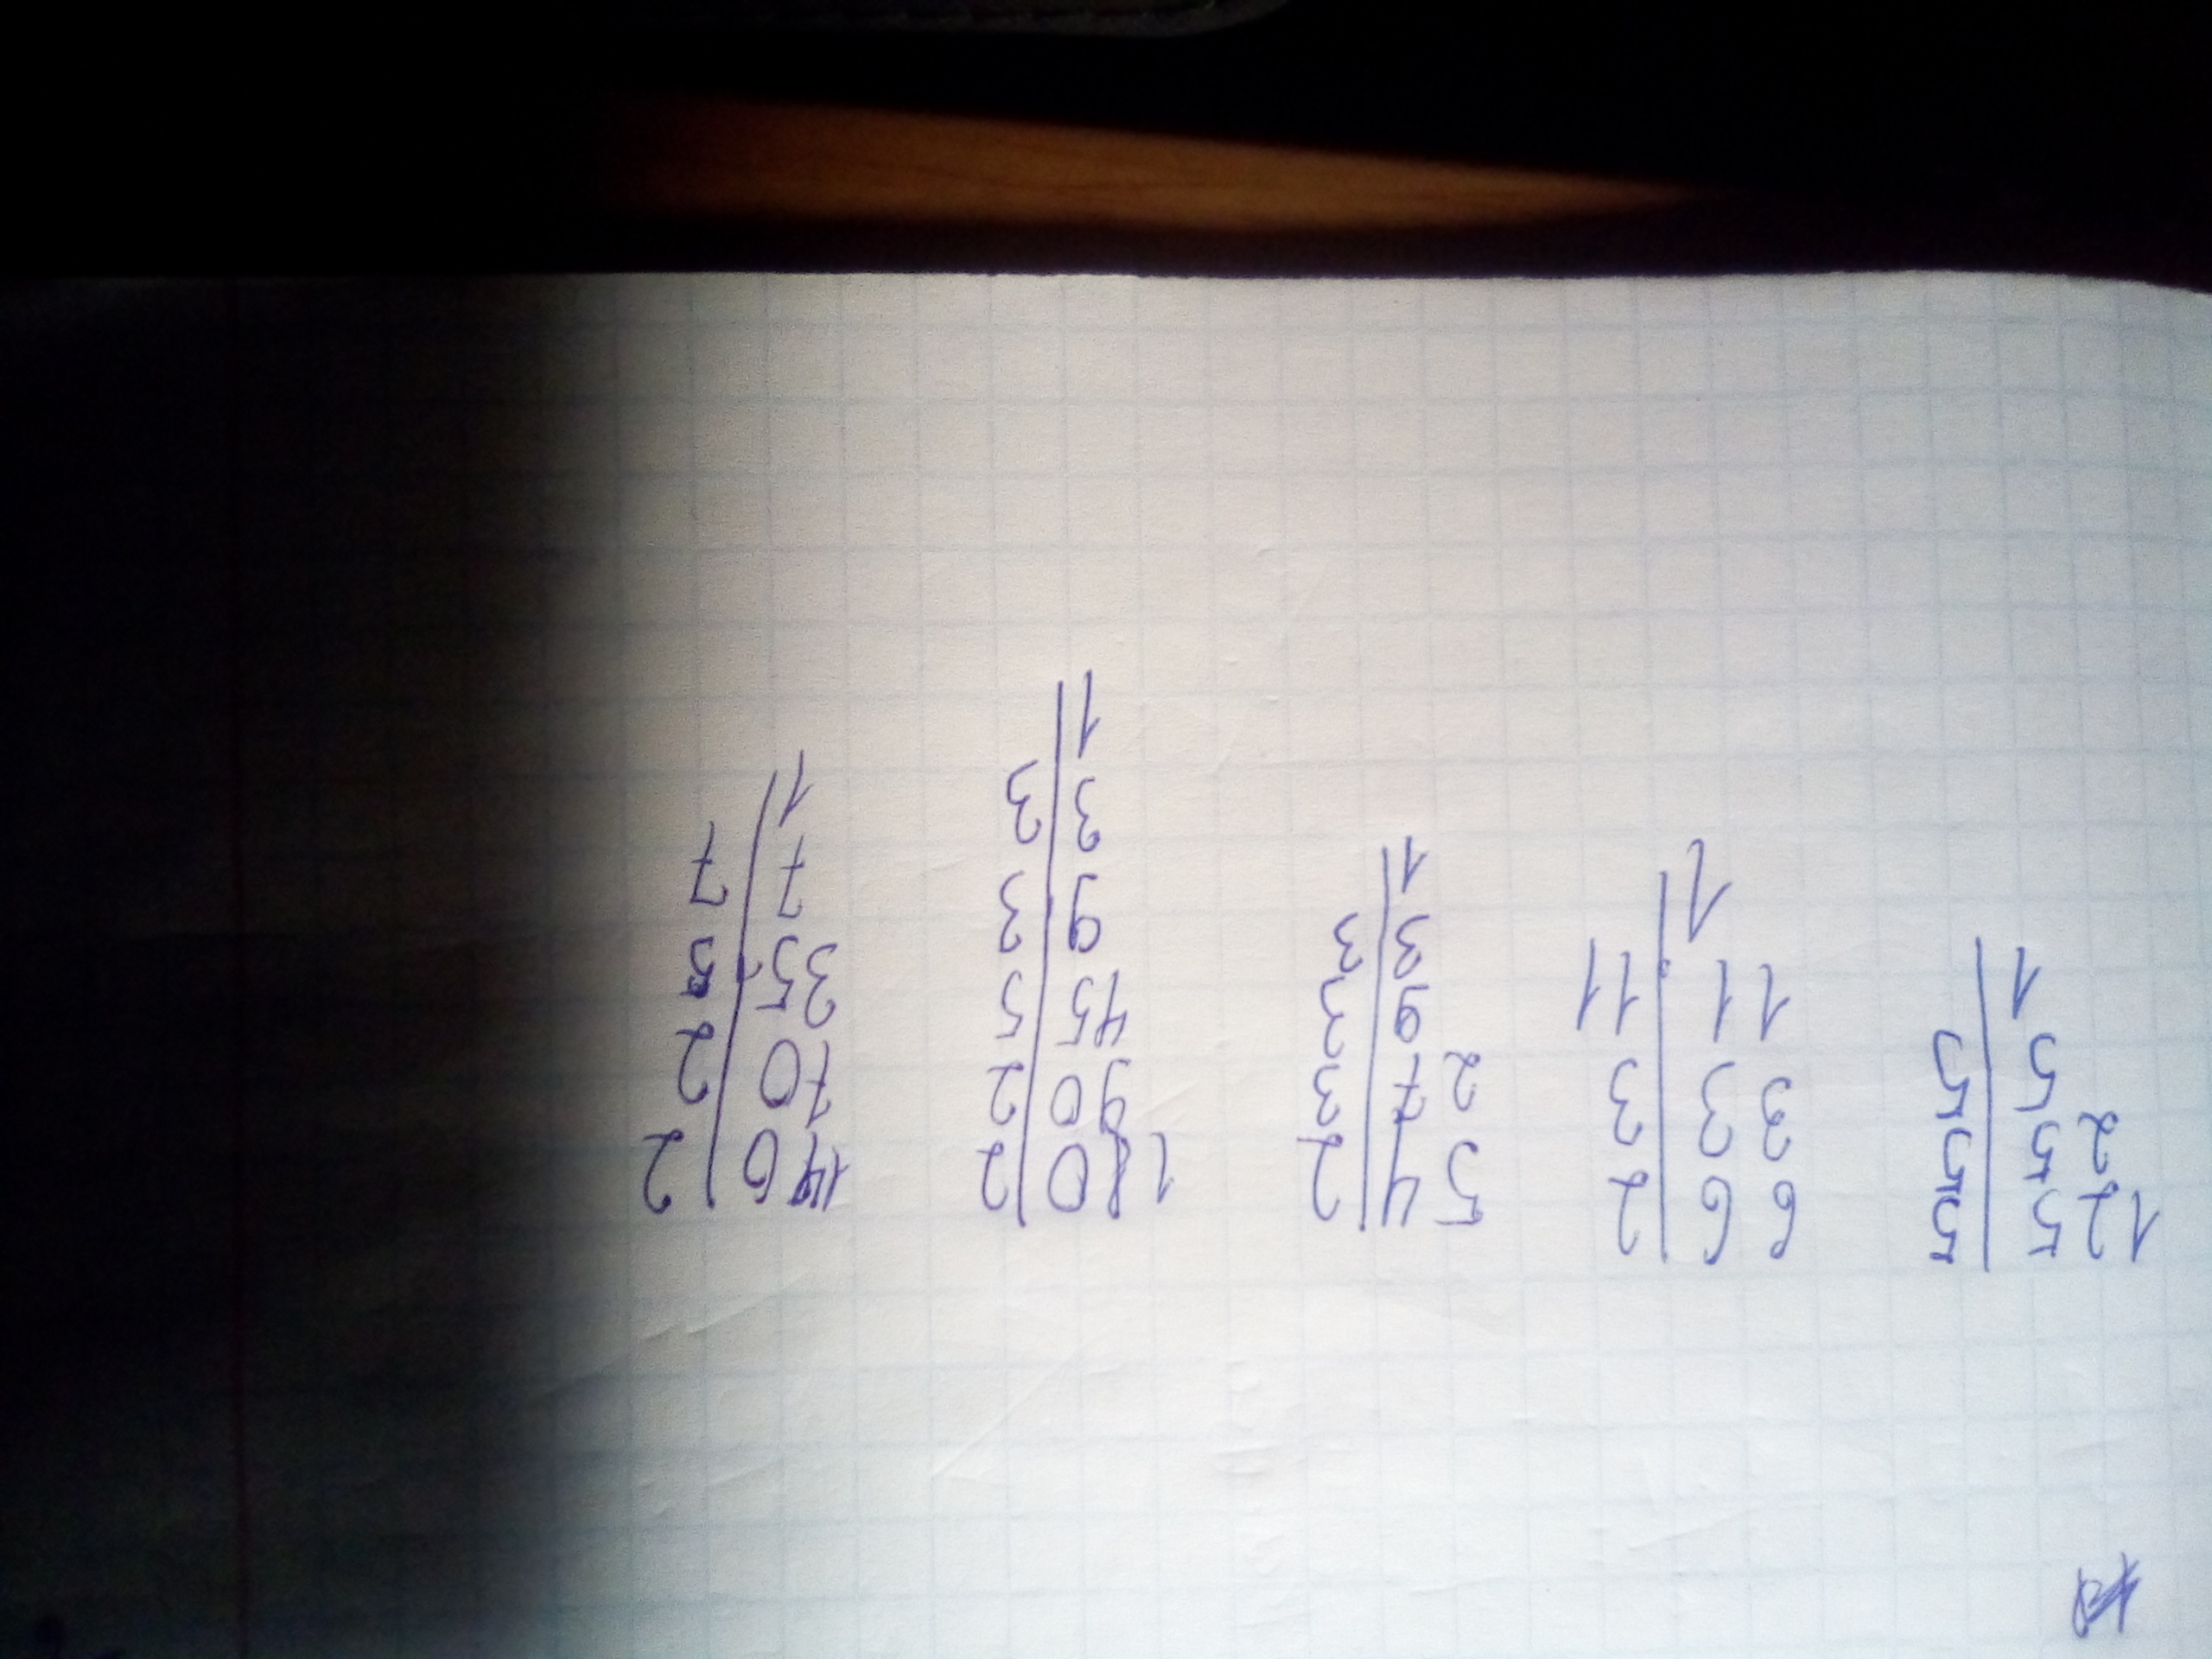 125|5
25|5
5|5
1|
66|2
33|3
11|11
1|
54|2
27|3
9|3
3|3
1|
180|2
90|2
45|5
9|3
3|3
1|
140|2
70|2
35|5
7|7
1|